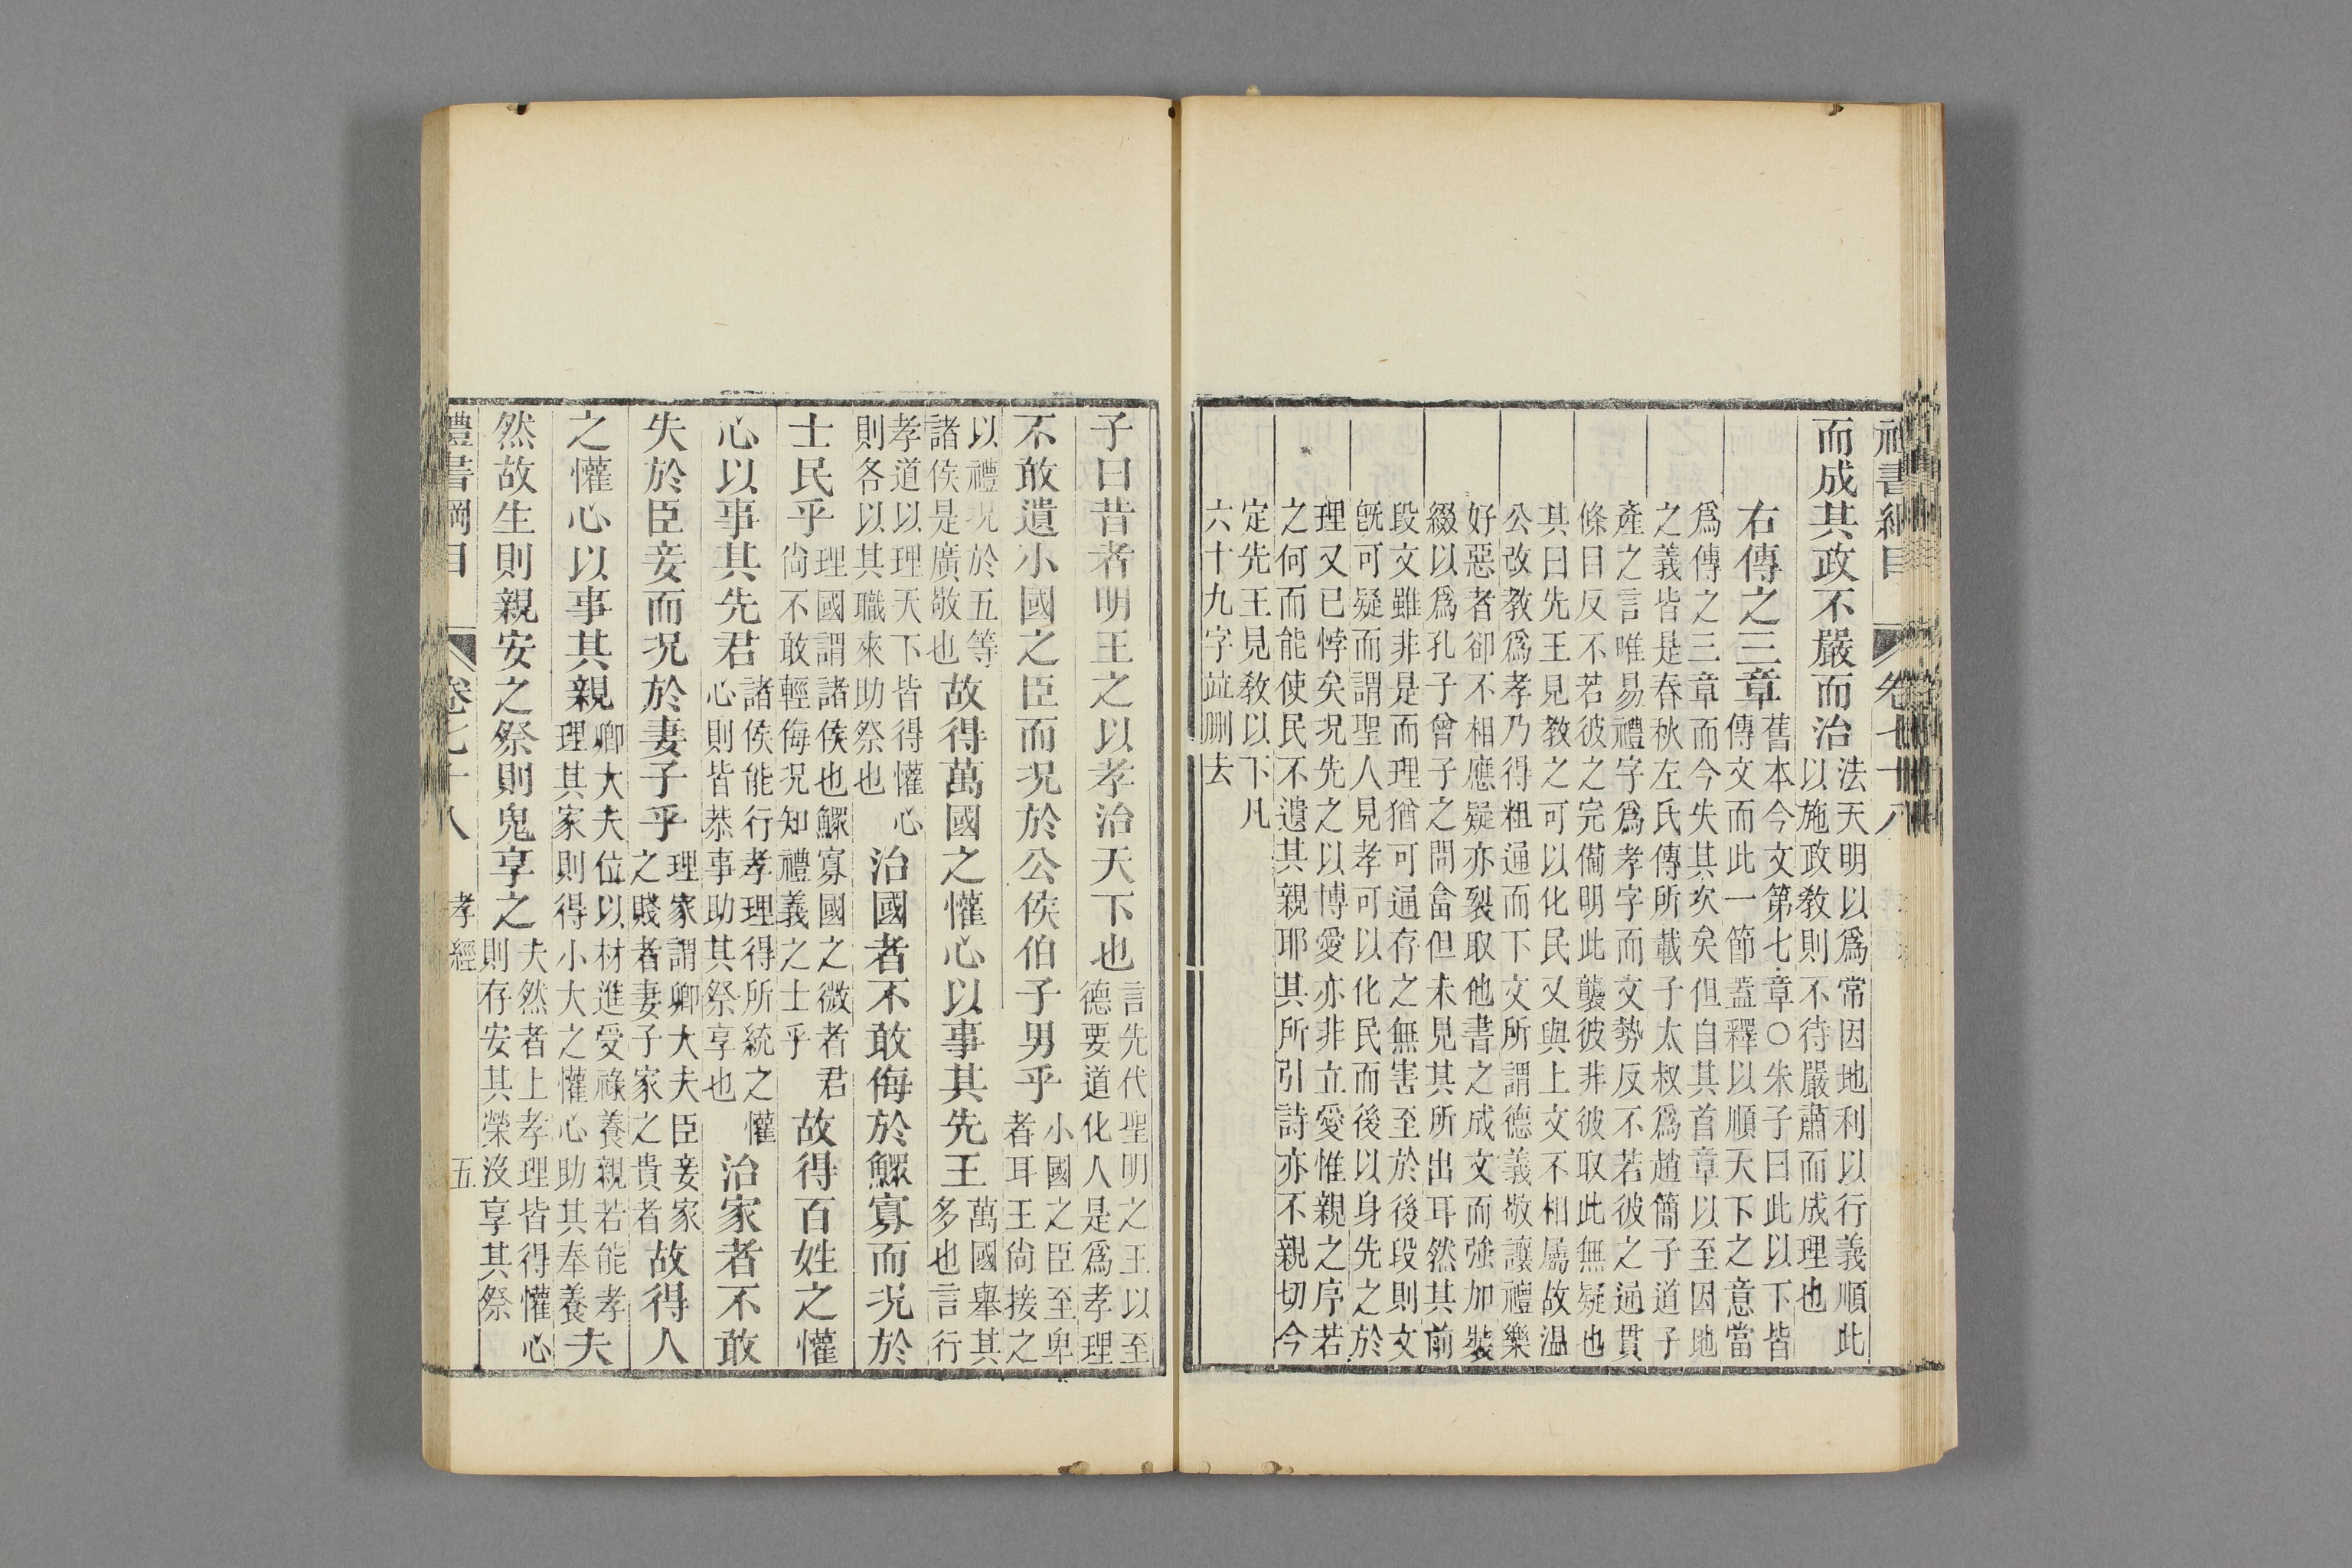 禮書綱目 卷七十八
而成其政不嚴而治法天明以爲常因地利以行義順此以施政敎則不待嚴肅而成理也
右傳之三章舊本今文第七章○朱子曰此以下皆傳文而此一節蓋釋以順天下之意當
爲傳之三章而今失其次矣但自其首章以至因地
之義皆是春秋左氏傳所載子太叔爲趙簡子道子
產之言唯易禮字爲孝字而文勢反不若彼之通貫
條目反不若彼之完備明此襲彼非彼取此無疑也
其曰先王見教之可以化民又與上文不相屬故温
公改教爲孝乃得粗通而下文所謂德義敬讓禮樂
好惡者卻不相應疑亦裂取他書之成文而強加裝
綴以爲孔子曾子之問畣但未見其所出耳然其前
段文雖非是而理猶可通存之無害至於後段則文
旣可疑而謂聖人見孝可以化民而後以身先之於
理又已悖矣况先之以博愛亦非立愛惟親之序若
之何而能使民不遺其親耶其所引詩亦不親切今
定先王見敎以下凡
六十九字竝刪去
子曰昔者明王之以孝治天下也言先代聖明之王以至德要道化人是爲孝理
不敢遺小國之臣而况於公侯伯子男乎小國之臣至卑者耳王尙接之
以禮况於五等諸侯是廣敬也故得萬國之懽心以事其先王萬國舉其多也言行
孝道以理天下皆得懽心則各以其職來助祭也治國者不敢侮於鰥寡而况於
士民乎理國謂諸侯也鰥寡國之微者君尙不敢輕侮况知禮義之士乎故得百姓之懽
心以事其先君諸侯能行孝理得所統之懽心則皆恭事助其祭享也治家者不敢
失於臣妾而况於妻子乎理家謂卿大夫臣妾家之賤者妻子家之貴者故得人
之懽心以事其親卿大夫位以材進受祿養親若能孝理其家則得小大之懽心助其奉養夫
然故生則親安之祭則鬼享之夫然者上孝理皆得懽心則存安其榮沒享其祭
禮書綱目 卷七十八 孝經 五